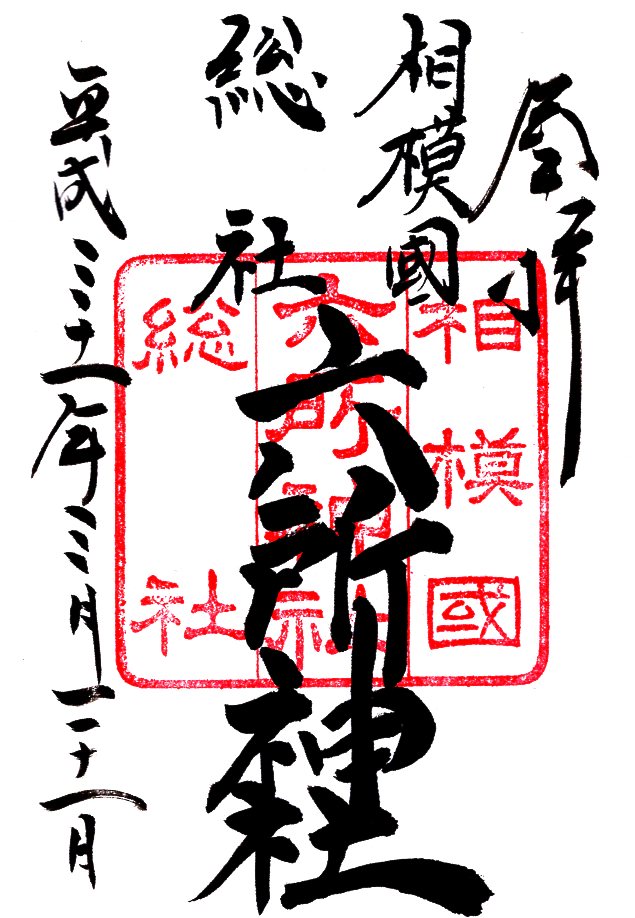 奉拝
相模國
総社
六所神社
平成三十一年三月二十一日
相模國
六所神社
総社